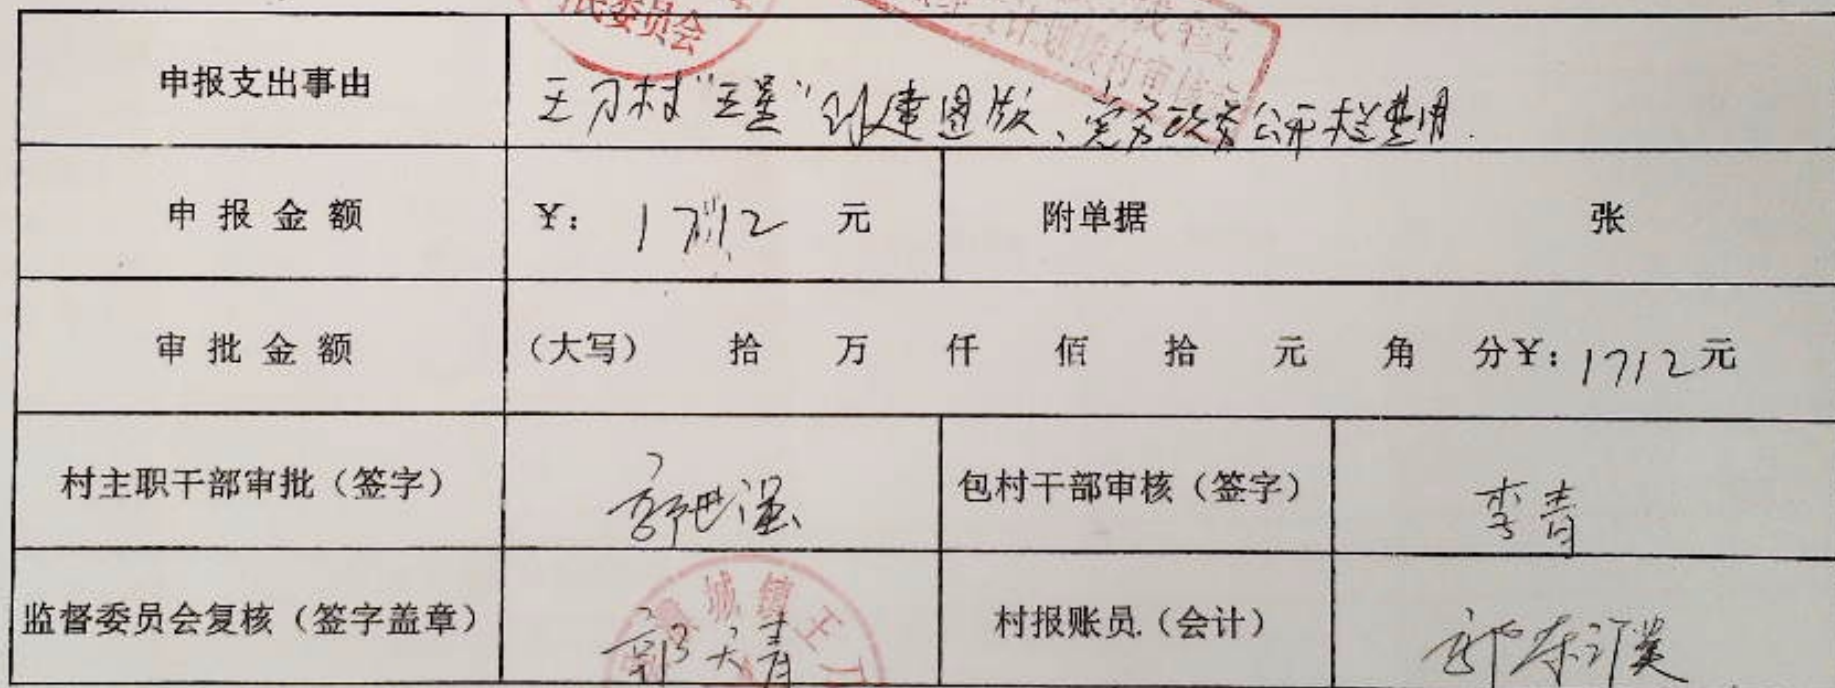 民委员会
申报支出事由
王刀村"五星"创建图版、党务政务公开栏费用.
申报金额 ¥: 1712 元 附单据 张
审批金额 (大写) 拾 万 仟 佰 拾 元 角 分¥: 1712元
村主职干部审批(签字) 郭世强 包村干部审核(签字) 李青
城镇王刀
监督委员会复核(签字盖章) 郭天青 村报账员.(会计)